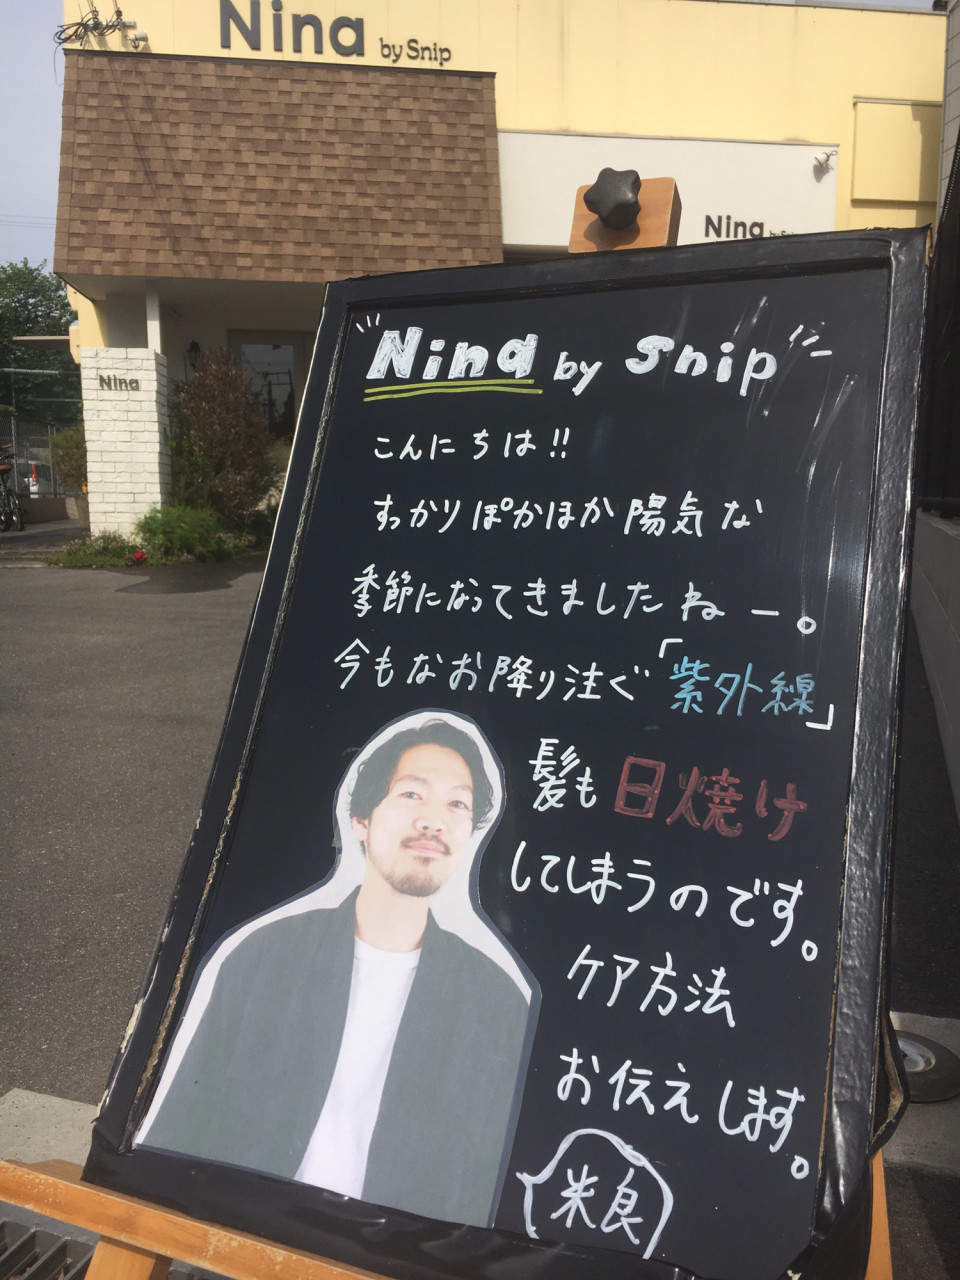 Nina by Snip
Nina by Snip
Nina
Nina by Snip
こんにちは!!
すっかりぽかほか陽気な
季節になってきましたねー。
今もなお降り注ぐ「紫外線」
髪も日焼け
してしまうのです。
ケア方法
お伝えします。
米良